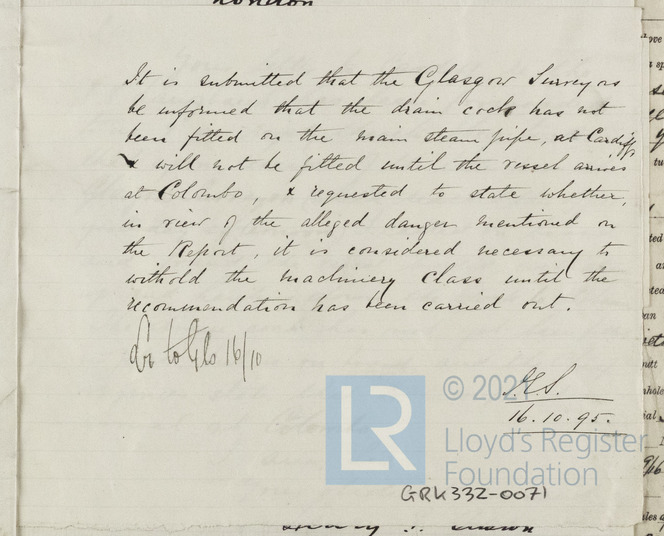 London
It is submitted that the Glasgow Surveyors
be informed that the drain cock has not
been fitted on the main steam pipe, at Cardiff,
& will not be fitted until the vessel arrives
at Colombo, & requested to state whether,
in view of the alleged danger mentioned on
the Report, it is considered necessary to
withold the machinery class until the
recommendation has been carried out.
Lr to Gls 16/10
16.10.95.
LR
© 2021
Lloyd's Register
Foundation
GRK332-0071